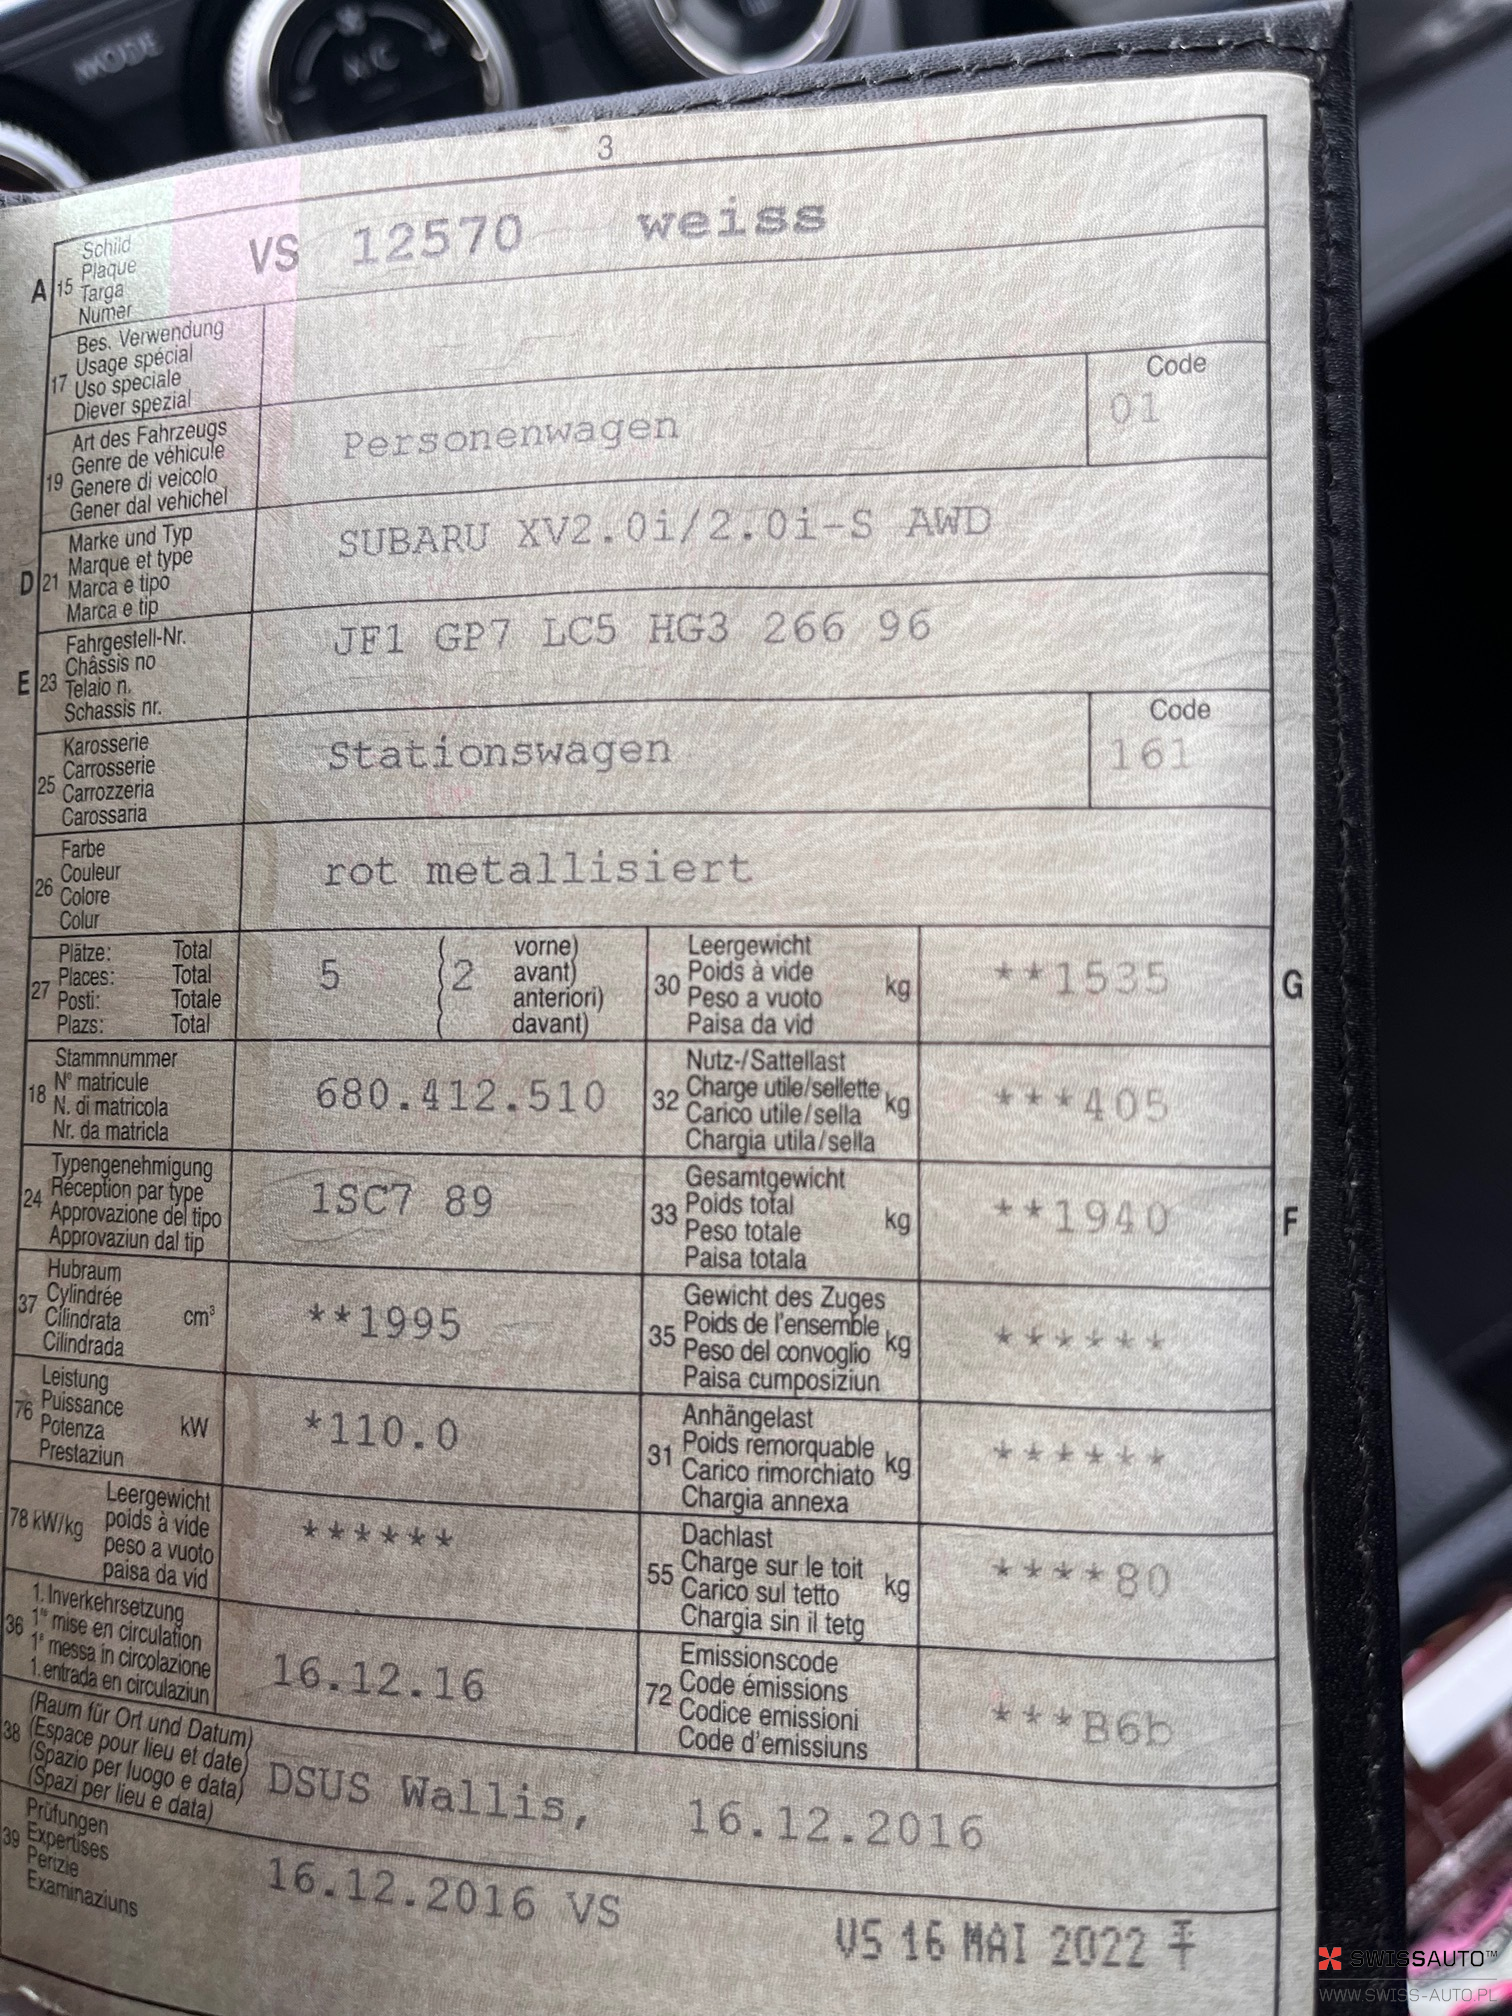 MODE
A/C
3
A 15 Schild
Plaque
Targa
Numer
VS 12570 weiss
17 Bes. Verwendung
Usage spécial
Uso speciale
Diever spezial
19 Art des Fahrzeugs
Genre de véhicule
Genere di veicolo
Gener dal vehichel
Personenwagen
Code
01
D 21 Marke und Typ
Marque et type
Marca e tipo
Marca e tip
SUBARU XV2.0i/2.0i-S AWD
E 23 Fahrgestell-Nr.
Châssis no
Telaio n.
Schassis nr.
JF1 GP7 LC5 HG3 266 96
25 Karosserie
Carrosserie
Carrozzeria
Carossaria
Stationswagen
Code
161
26 Farbe
Couleur
Colore
Colur
rot metallisiert
27 Plätze: Total
Places: Total
Posti: Totale
Plazs: Total
5 ( 2 vorne)
avant)
anteriori)
davant)
30 Leergewicht
Poids à vide
Peso a vuoto
Paisa da vid
kg
**1535
G
18 Stammnummer
N° matricule
N. di matricola
Nr. da matricla
680.412.510
32 Nutz-/Sattellast
Charge utile/sellette
Carico utile/sella
Chargia utila/sella
kg
***405
24 Typengenehmigung
Réception par type
Approvazione del tipo
Approvaziun dal tip
1SC7 89
33 Gesamtgewicht
Poids total
Peso totale
Paisa totala
kg
**1940
F
37 Hubraum
Cylindrée
Cilindrata
Cilindrada
cm³
**1995
35 Gewicht des Zuges
Poids de l'ensemble
Peso del convoglio
Paisa cumposiziun
kg
******
76 Leistung
Puissance
Potenza
Prestaziun
kW
*110.0
31 Anhängelast
Poids remorquable
Carico rimorchiato
Chargia annexa
kg
******
78 kW/kg Leergewicht
poids à vide
peso a vuoto
paisa da vid
******
55 Dachlast
Charge sur le toit
Carico sul tetto
Chargia sin il tetg
kg
****80
36 1. Inverkehrsetzung
1re mise en circulation
1e messa in circolazione
1. entrada en circulaziun
16.12.16
72 Emissionscode
Code émissions
Codice emissioni
Code d'emissiuns
***B6b
38 (Raum für Ort und Datum)
(Espace pour lieu et date)
(Spazio per luogo e data)
(Spazi per lieu e data)
DSUS Wallis, 16.12.2016
39 Prüfungen
Expertises
Perizie
Examinaziuns
16.12.2016 VS
VS 16 MAI 2022
SWISSAUTO™
WWW.SWISS-AUTO.PL